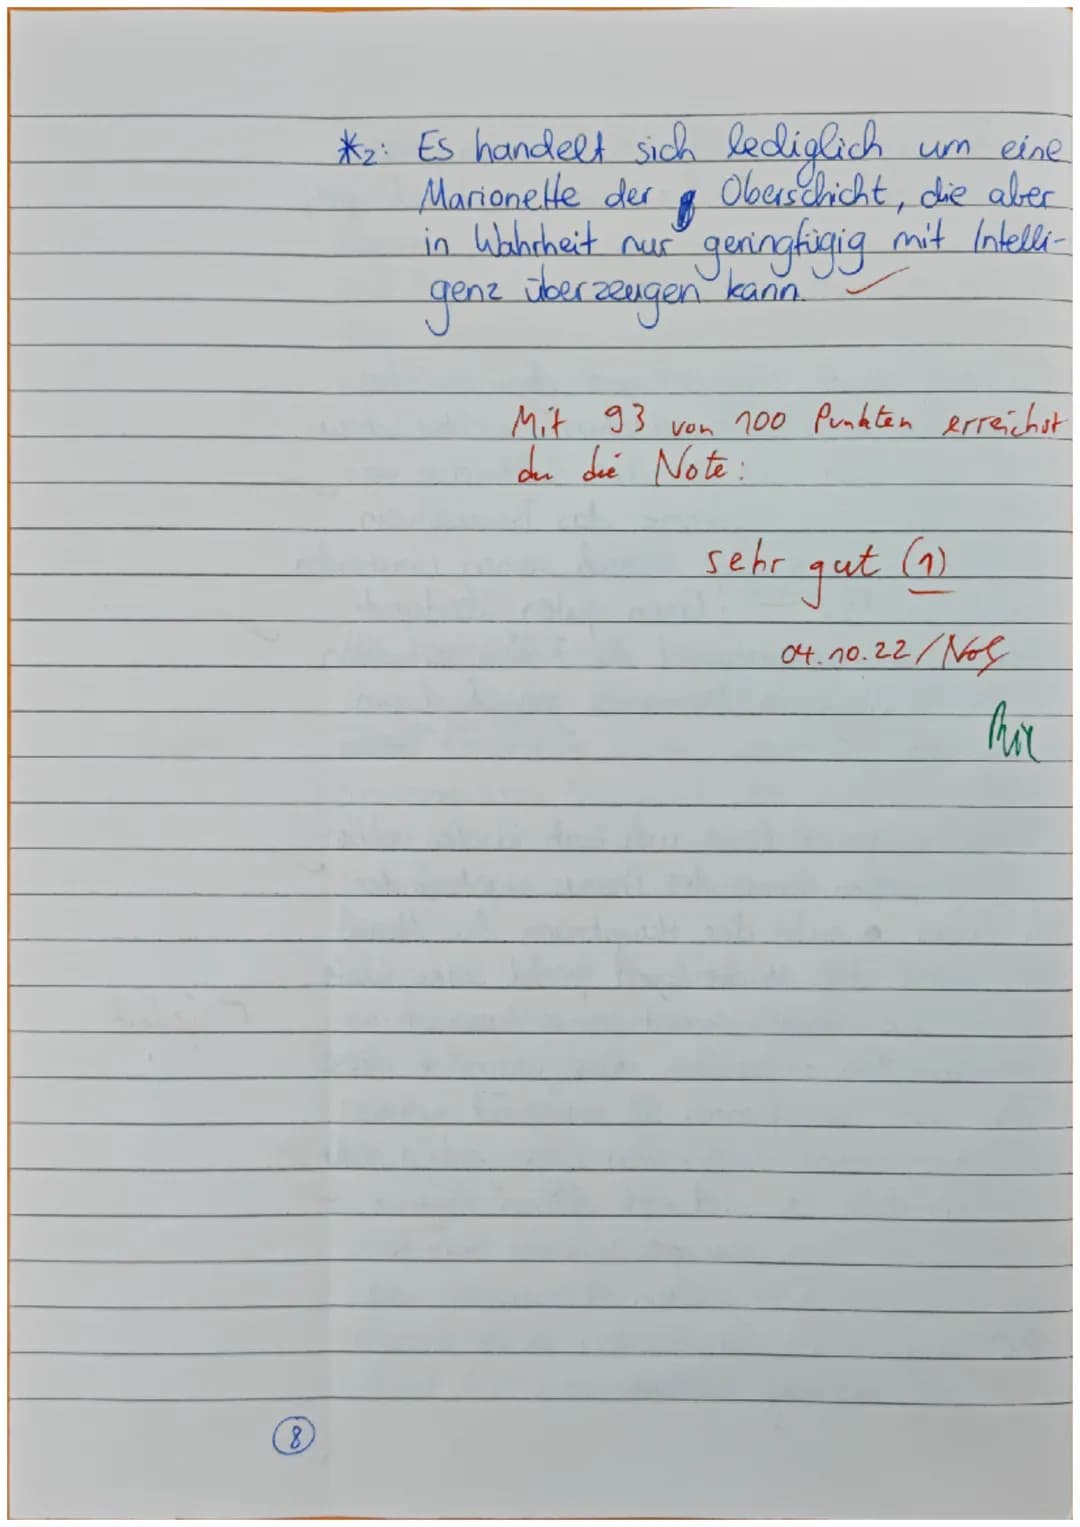 *2: Es handelt sich lediglich um eine
Marionette der Oberschicht, die aber
in Wahrheit nur geringfügig mit Intelli-
genz überzeugen kann.
Mit 93 von 100 Punkten erreichst
du die Note:
sehr gut (1)
04.10.22/
8